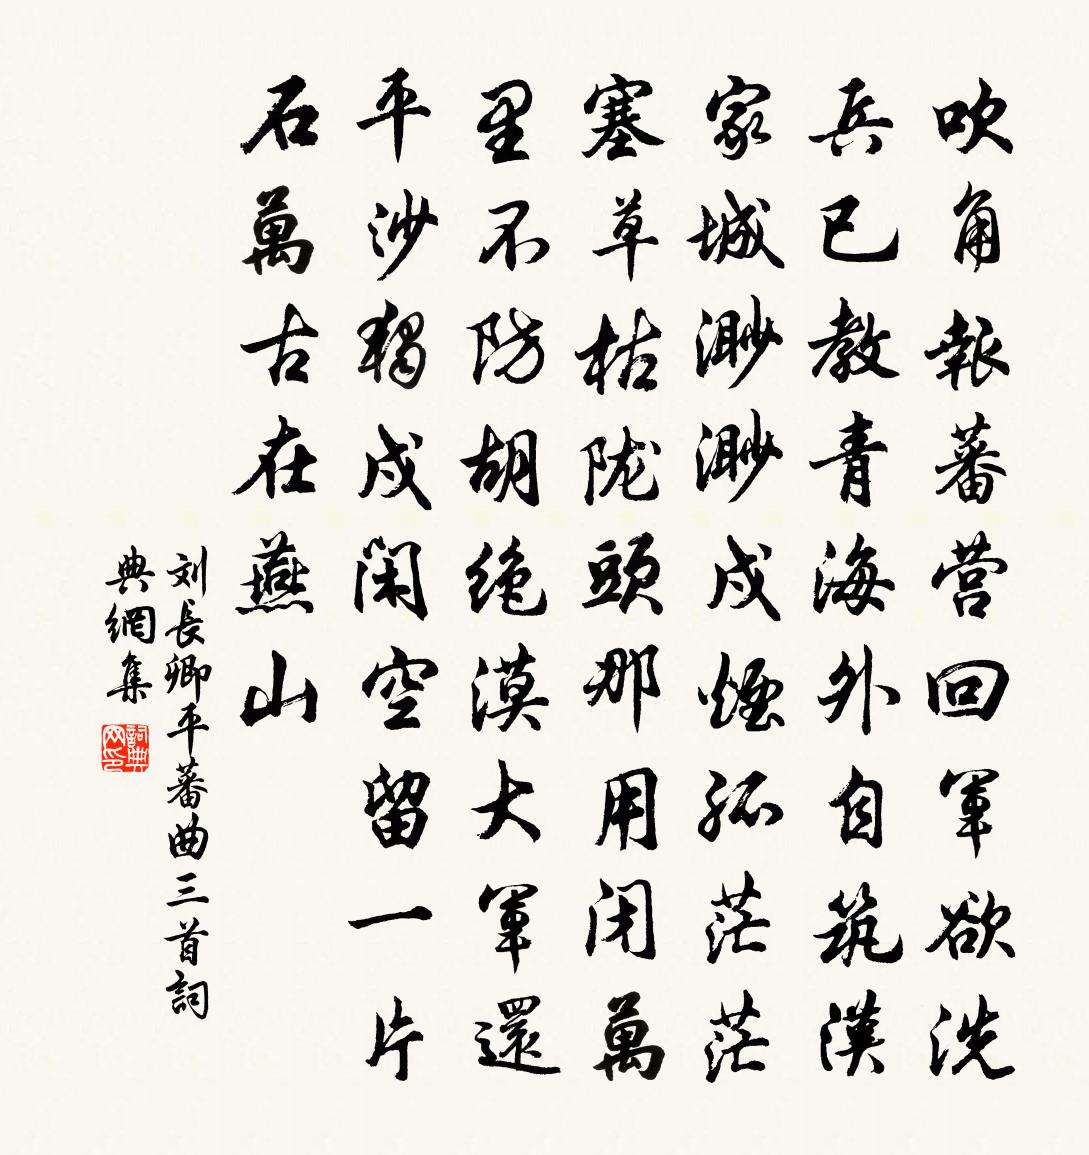 吹角報蕃营回軍欲洗
兵已教青海外自筑漢
家城渺渺戍煙孤茫茫
塞草枯陇頭那用闭萬
里不防胡绝漠大軍還
平沙獨戍閑空留一片
石萬古在燕山
刘長卿平蕃曲三首詞
典網集
詞典
网印